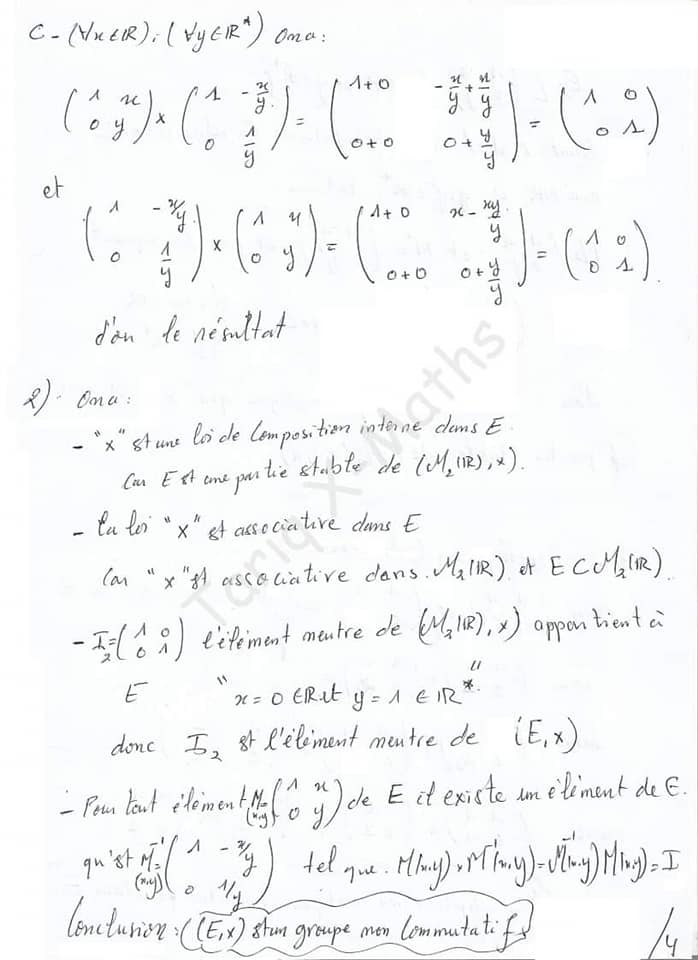 C - (∀x∈ℝ); (∀y∈ℝ*) Ona:
(1 x / 0 y) × (1 -x/y / 0 1/y) = (1+0 -x/y+x/y / 0+0 0+y/y) = (1 0 / 0 1)
et
(1 -x/y / 0 1/y) × (1 x / 0 y) = (1+0 x-xy/y / 0+0 0+y/y) = (1 0 / 0 1).
d'où le résultat
2) - Ona:
- "x" st une loi de Composition interne dans E.
Car E st une partie stable de (M₂(ℝ), x).
- la loi "x" st associative dans E
Car "x" st associative dans M₂(ℝ) et E ⊂ M₂(ℝ)
- I₂=(1 0 / 0 1) l'élément neutre de (M₂(ℝ), x) appartient à
E "x = 0 ∈ ℝ et y = 1 ∈ ℝ*"
donc I₂ st l'élément neutre de (E, x)
- Pour tout élément M(x,y)=(1 x / 0 y) de E il existe un élément de E.
qu'st M⁻¹(x,y)=(1 -x/y / 0 1/y) tel que. M(x,y) × M⁻¹(x,y) = M⁻¹(x,y) M(x,y) = I
Conclusion: ((E, x) st un groupe non Commutatif)
/4
Tariq X-Maths